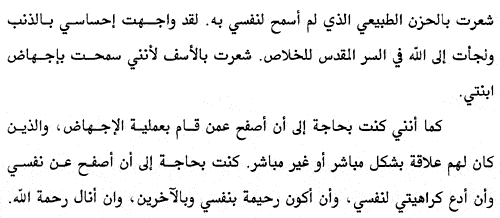 شعرت بالحزن الطبيعي الذي لم أسمح لنفسي به. لقد واجهت إحساسي بالذنب
ونجأت إلى الله في السر المقدس للخلاص. شعرت بالأسف لأنني سمحت بإجهاض
ابنتي.
كما أنني كنت بحاجة إلى أن أصفح عمن قام بعملية الإجهاض، والذين
كان لهم علاقة بشكل مباشر أو غير مباشر. كنت بحاجة إلى أن أصفح عن نفسي
وأن أدع كراهيتي لنفسي، وأن أكون رحيمة بنفسي وبالآخرين، وان أنال رحمة الله.